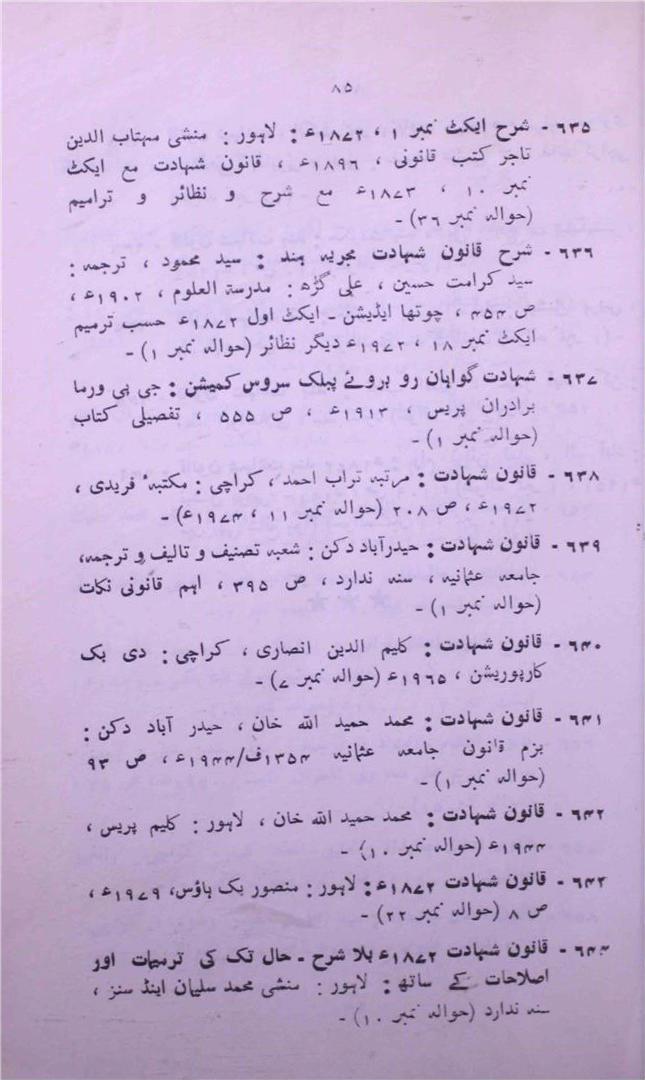 ۸۵
۶۳۵ - شرح ایکٹ نمبر ۱ ، ۱۸۷۲ء : لاہور : منشی مہتاب الدین
تاجر کتب قانونی ، ۱۸۹۶ء ، قانون شہادت مع ایکٹ
نمبر ۱۰ ، ۱۸۷۳ء مع شرح و نظائر و ترامیم
(حوالہ نمبر ۳۶) -
۶۳۶ - شرح قانون شہادت مجریہ ہند : سید محمود ، ترجمہ :
سید کرامت حسین ، علی گڑھ : مدرسۃ العلوم ، ۱۹۰۲ء ،
ص ۴۵۴ ، چوتھا ایڈیشن - ایکٹ اول ۱۸۷۲ء حسب ترمیم
ایکٹ نمبر ۱۸ ، ۱۹۷۲ء دیگر نظائر (حوالہ نمبر ۱) -
۶۳۷ - شہادت گواہان رو بروئے پبلک سروس کمیشن : جی پی ورما
برادران پریس ، ۱۹۱۳ء ، ص ۵۵۵ ، تفصیلی کتاب
(حوالہ نمبر ۱) -
۶۳۸ - قانون شہادت : مرتبہ تراب احمد ، کراچی : مکتبۂ فریدی ،
۱۹۷۲ء ، ص ۲۰۸ (حوالہ نمبر ۱۱ ، ۱۹۷۴ء) -
۶۳۹ - قانون شہادت : حیدرآباد دکن : شعبہ تصنیف و تالیف و ترجمہ،
جامعہ عثمانیہ ، سنہ ندارد ، ص ۳۹۵ ، اہم قانونی نکات
(حوالہ نمبر ۱) -
۶۴۰ - قانون شہادت : کلیم الدین انصاری ، کراچی : دی بک
کارپوریشن ، ۱۹۶۵ء (حوالہ نمبر ۷) -
۶۴۱ - قانون شہادت : محمد حمید اللہ خان ، حیدر آباد دکن :
بزم قانون جامعہ عثمانیہ ۱۳۵۴ف/۱۹۴۴ء ، ص ۹۳
(حوالہ نمبر ۱) -
۶۴۲ - قانون شہادت : محمد حمید اللہ خان ، لاہور : کلیم پریس ،
۱۹۴۴ء (حوالہ نمبر ۱۰) -
۶۴۳ - قانون شہادت ۱۸۷۲ء : لاہور : منصور بک ہاؤس، ۱۹۷۹ء ،
ص ۸ (حوالہ نمبر ۲۲) -
۶۴۴ - قانون شہادت ۱۸۷۲ء بلا شرح - حال تک کی ترمیات اور
اصلاحات کے ساتھ : لاہور : منشی محمد سلیمان اینڈ سنز ،
سنہ ندارد (حوالہ نمبر ۱۰) -